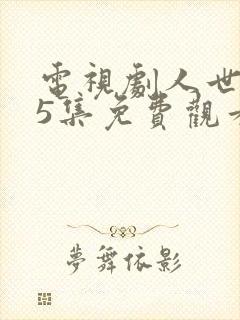 電視劇人世
5集免費觀
夢舞依影